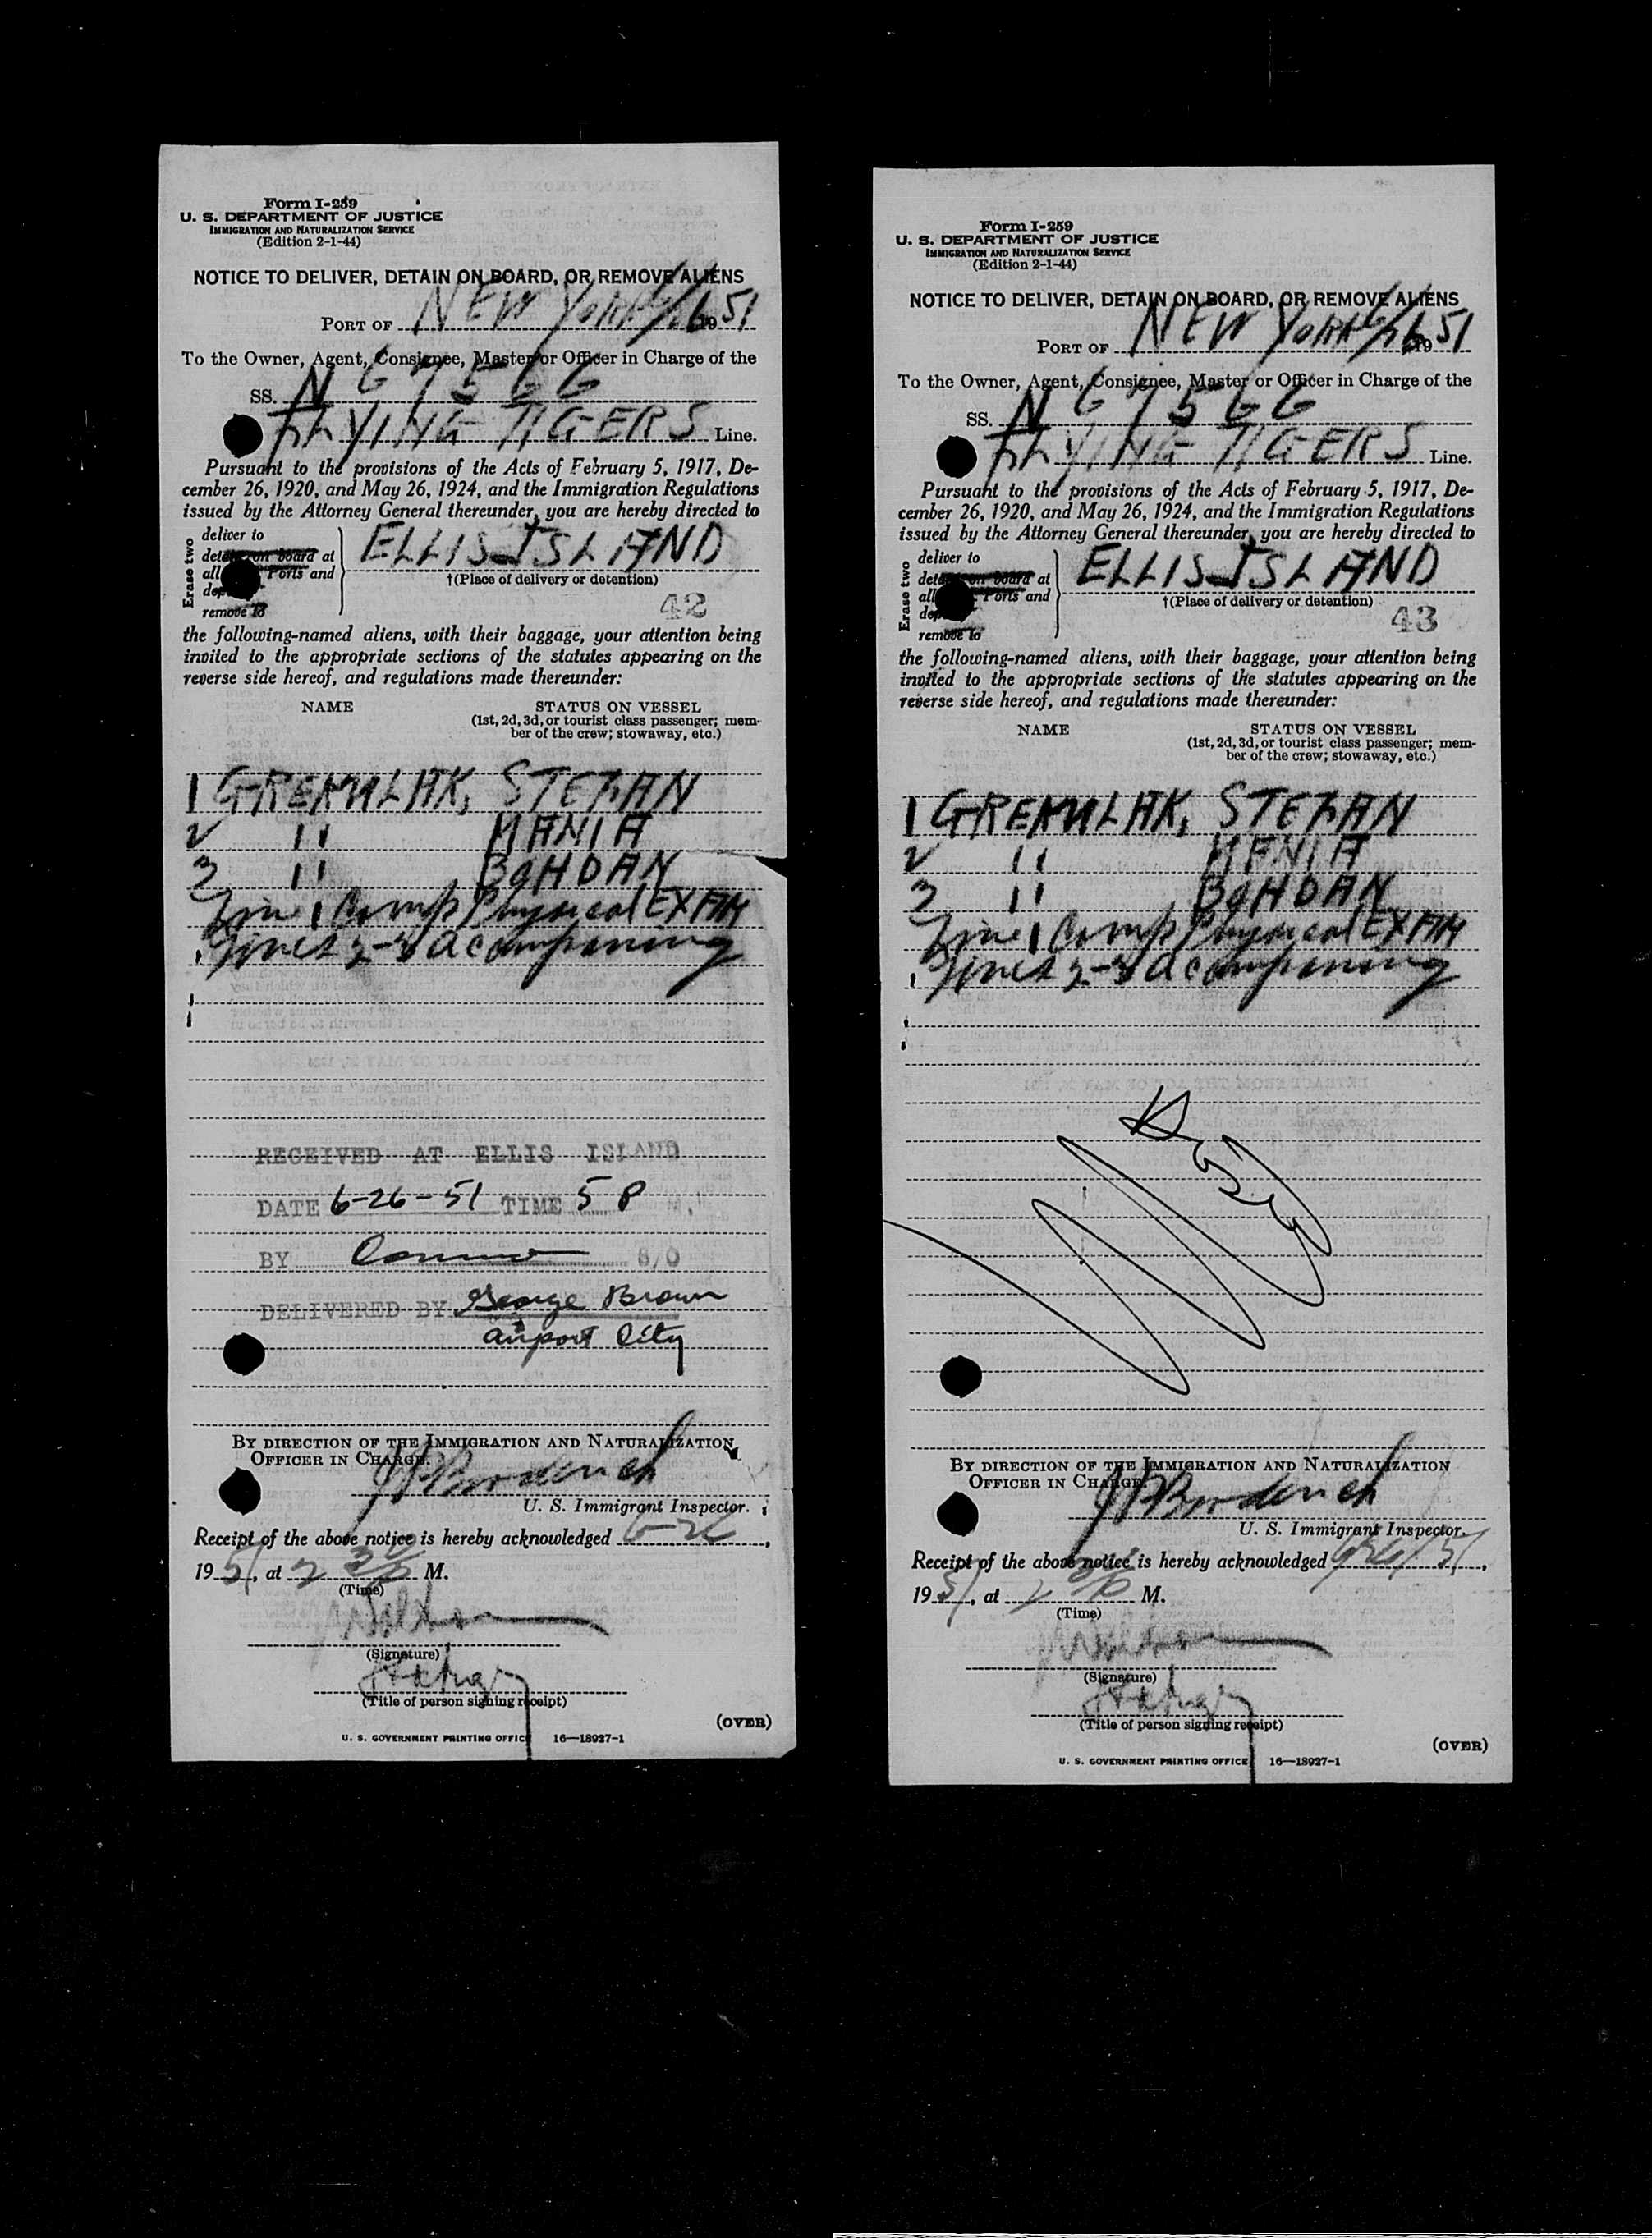 Form I-259
U. S. DEPARTMENT OF JUSTICE
IMMIGRATION AND NATURALIZATION SERVICE
(Edition 2-1-44)
NOTICE TO DELIVER, DETAIN ON BOARD, OR REMOVE ALIENS
PORT OF NEW YORK 6/26 1951
To the Owner, Agent, Consignee, Master or Officer in Charge of the
SS. N 67566
FLYING TIGERS Line.
Pursuant to the provisions of the Acts of February 5, 1917, De-
cember 26, 1920, and May 26, 1924, and the Immigration Regulations
issued by the Attorney General thereunder, you are hereby directed to
Erase two
deliver to
detain on board at
all Ports and
remove to
ELLIS ISLAND
†(Place of delivery or detention)
42
the following-named aliens, with their baggage, your attention being
invited to the appropriate sections of the statutes appearing on the
reverse side hereof, and regulations made thereunder:
NAME STATUS ON VESSEL
(1st, 2d, 3d, or tourist class passenger; mem-
ber of the crew; stowaway, etc.)
1 STEFAN
2 " MANIA
3 " BOHDAN
Line 1 Comp Physical EXAM
Lines 2-3 Accompaning
RECEIVED AT ELLIS ISLAND
DATE 6-26-51 TIME 5 P M.
BY S/O
DELIVERED BY George Brown
Airport City
BY DIRECTION OF THE IMMIGRATION AND NATURALIZATION
OFFICER IN CHARGE.
U. S. Immigrant Inspector.
Receipt of the above notice is hereby acknowledged 6-26,
1951, at 2 M.
(Time)
(Signature)
(Title of person signing receipt)
(OVER)
U. S. GOVERNMENT PRINTING OFFICE 16—18927-1
Form I-259
U. S. DEPARTMENT OF JUSTICE
IMMIGRATION AND NATURALIZATION SERVICE
(Edition 2-1-44)
NOTICE TO DELIVER, DETAIN ON BOARD, OR REMOVE ALIENS
PORT OF NEW YORK 6/26 1951
To the Owner, Agent, Consignee, Master or Officer in Charge of the
SS. N 67566
FLYING TIGERS Line.
Pursuant to the provisions of the Acts of February 5, 1917, De-
cember 26, 1920, and May 26, 1924, and the Immigration Regulations
issued by the Attorney General thereunder, you are hereby directed to
Erase two
deliver to
detain on board at
all Ports and
remove to
ELLIS ISLAND
†(Place of delivery or detention)
43
the following-named aliens, with their baggage, your attention being
invited to the appropriate sections of the statutes appearing on the
reverse side hereof, and regulations made thereunder:
NAME STATUS ON VESSEL
(1st, 2d, 3d, or tourist class passenger; mem-
ber of the crew; stowaway, etc.)
1 STEFAN
2 " MANIA
3 " BOHDAN
Line 1 Comp Physical EXAM
Lines 2-3 Accompaning
BY DIRECTION OF THE IMMIGRATION AND NATURALIZATION
OFFICER IN CHARGE.
U. S. Immigrant Inspector.
Receipt of the above notice is hereby acknowledged 6/26/51,
1951, at 2 M.
(Time)
(Signature)
(Title of person signing receipt)
(OVER)
U. S. GOVERNMENT PRINTING OFFICE 16—18927-1